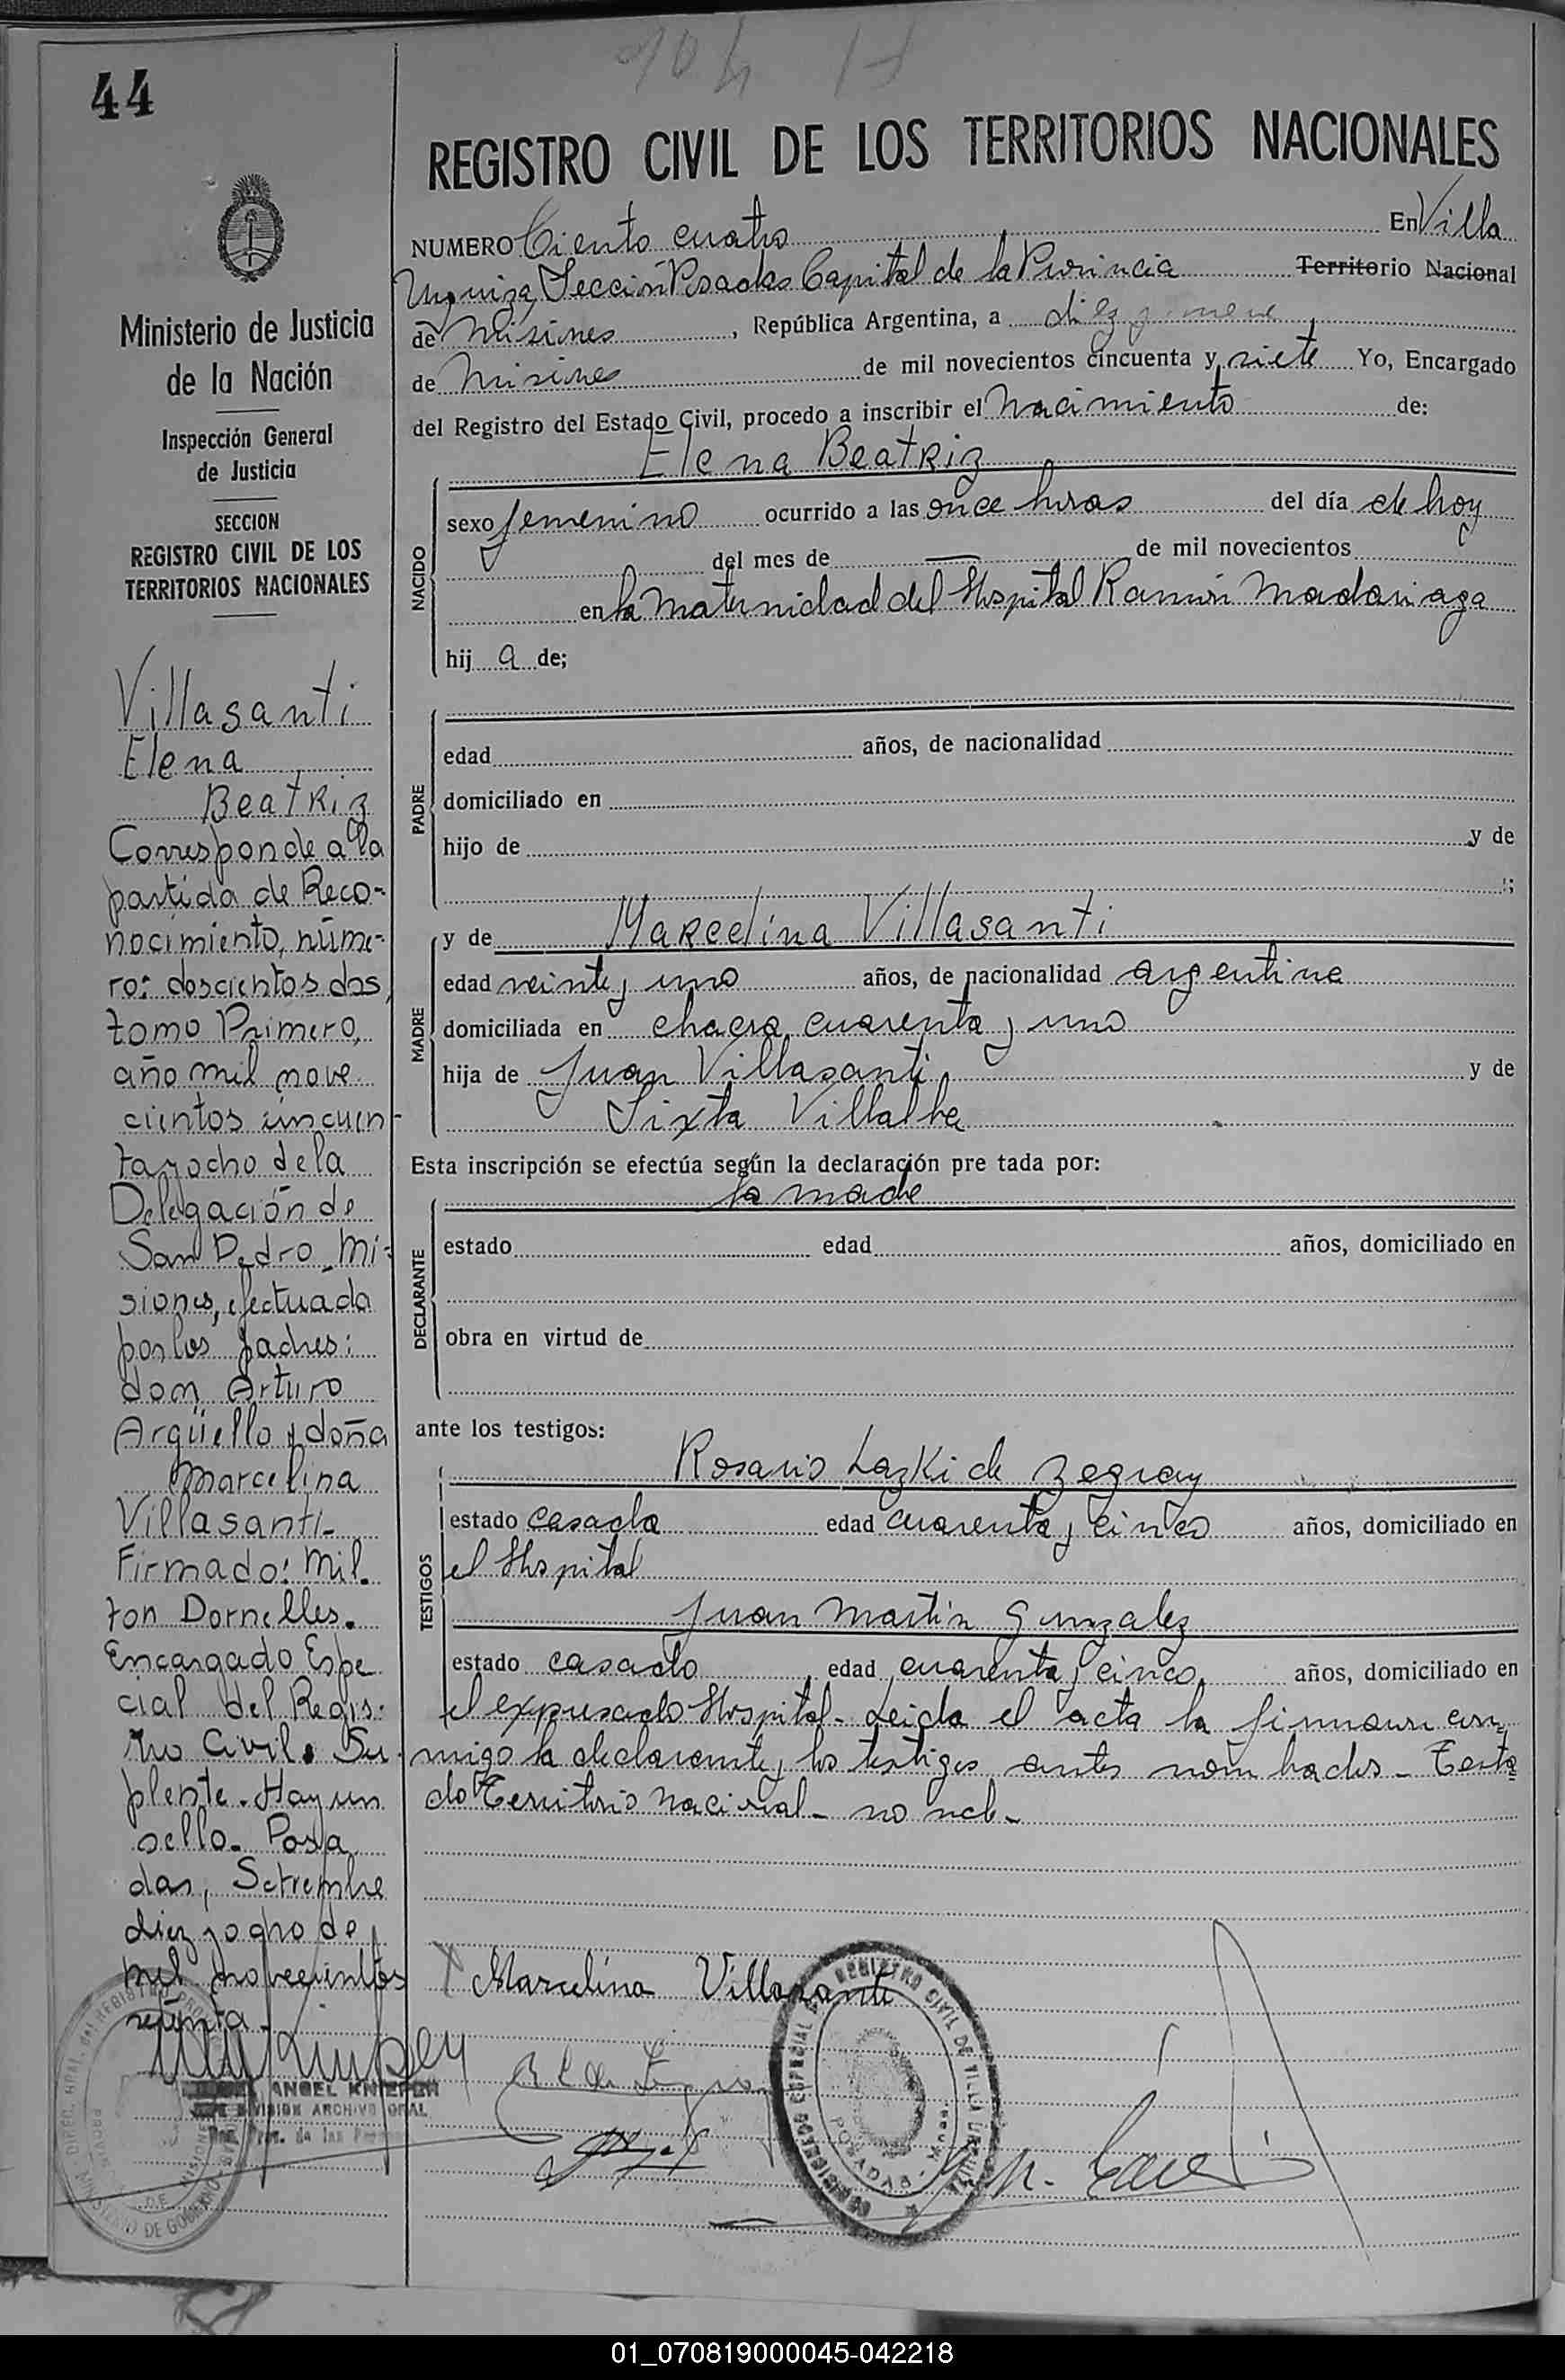 44
REGISTRO CIVIL DE LOS TERRITORIOS NACIONALES
NUMERO Ciento cuatro En Villa
Urquiza, Sección Posadas Capital de la Provincia Territorio Nacional
de Misiones, República Argentina, a diez y nueve
de Misiones de mil novecientos cincuenta y siete Yo, Encargado
del Registro del Estado Civil, procedo a inscribir el Nacimiento de:
Elena Beatriz
NACIDO
sexo femenino ocurrido a las once horas del día de hoy
del mes de — de mil novecientos
en la Maternidad del Hospital Ramón Madariaga
hij a de;
PADRE
edad años, de nacionalidad
domiciliado en
hijo de y de
;
MADRE
y de Marcelina Villasanti
edad veinte y uno años, de nacionalidad argentina
domiciliada en chacra cuarenta y uno
hija de Juan Villasanti y de
Sixta Villalba
Esta inscripción se efectúa según la declaración pre tada por:
la madre
DECLARANTE
estado edad años, domiciliado en
obra en virtud de
ante los testigos:
TESTIGOS
Rosario Lazki de Zegray
estado casada edad cuarenta y cinco años, domiciliado en
el Hospital
Juan Martin Gonzalez
estado casado edad cuarenta y cinco años, domiciliado en
el expresado Hospital - Leida el acta la firmaron con-
migo la declarante y los testigos antes nombrados - Testa
do Territorio Nacional - no vale -
Marcelina Villasanti
Ministerio de Justicia
de la Nación
Inspección General
de Justicia
SECCION
REGISTRO CIVIL DE LOS
TERRITORIOS NACIONALES
Villasanti
Elena
Beatriz
Corresponde a la
partida de Reco-
nocimiento, núme-
ro: doscientos dos,
tomo Primero,
año mil nove
cientos cincuen-
ta y ocho de la
Delegación de
San Pedro - Mi-
siones, efectuada
por los padres:
don Arturo
Argüello y doña
Marcelina
Villasanti-
Firmado: Mil-
ton Dornelles.
Encargado Espe
cial del Regis-
tro Civil. Su-
plente. Hay un
sello. Posa
das, Setiembre
diez y ocho de
mil novecientos
setenta -
ANGEL
JEFE DIVISION ARCHIVO GRAL
REGISTRO CIVIL DE VILLA URQUIZA
POSADAS
01_070819000045-042218